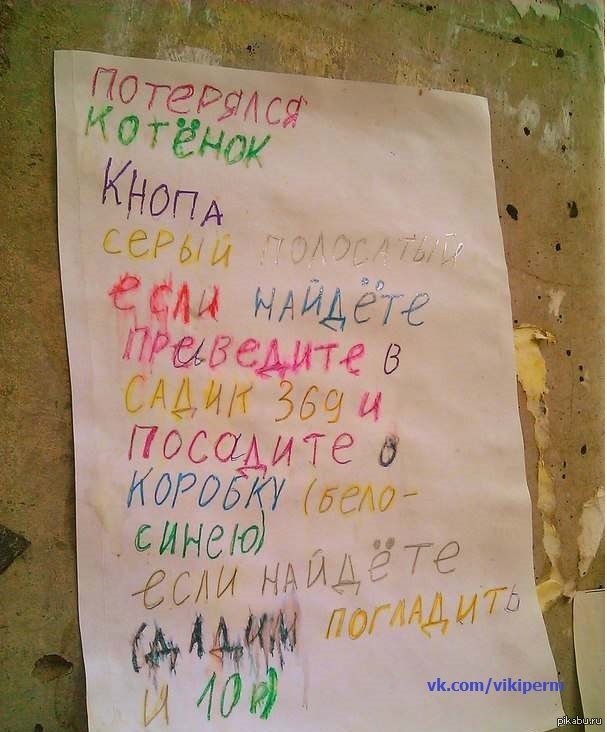 ПОТЕРЯЛСЯ
КОТЁНОК
КНОПА
СЕРЫЙ ПОЛОСАТЫЙ
если НАЙДЁТЕ
ПРеиВеДИТе В
САДИК 369 и
ПОСАДИТЕ в
КОРОБКУ (бело-
синею)
если НАЙДЁТЕ
ДАДИМ ПОГЛАДИТЬ
И 10р
vk.com/vikiperm
pikabu.ru